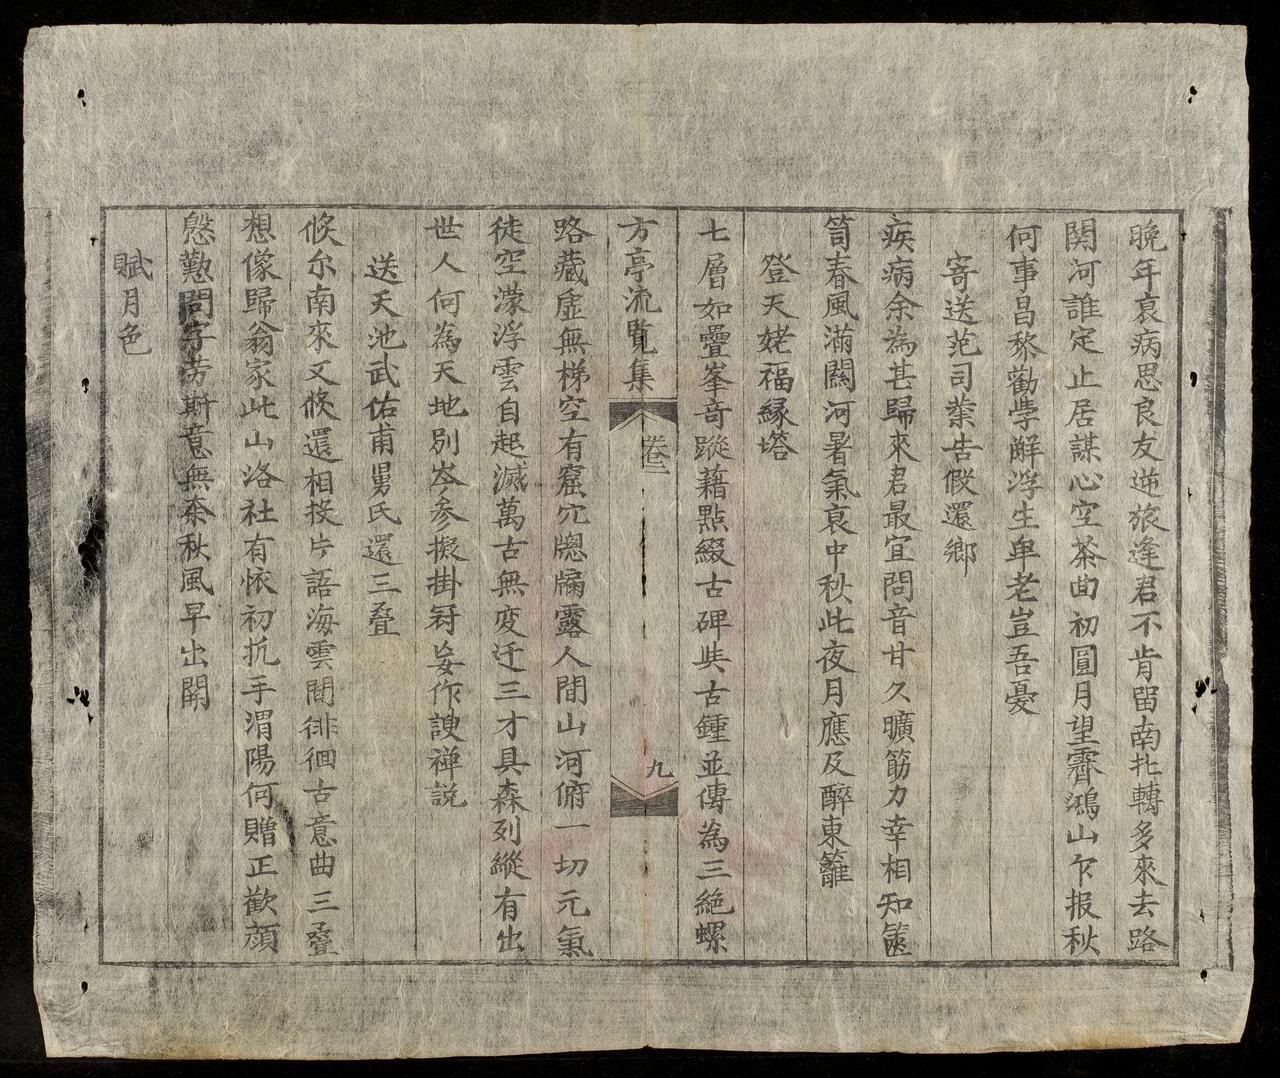 晚年哀病思良友逆旅逢君不肯留南北轉多來去路
関河誰定止居謀心空茶曲初圓月望霽鴻山乍报秋
何事昌黎勸学解浮生卑老豈吾憂
寄送范司業告假還鄉
疾病余為甚歸來君最宜問音甘久曠筋力幸相知篋
笥春風滿関河暑氣哀中秋此夜月應及醉東籬
登天姥福緣塔
七層如疊峯竒蹤藉點綴古碑㒷古鍾並傳為三絶螺
方亭流覧集
卷三
九
路藏虛無梯空有窟穴牕牖露人間山河俯一切元氣
徒空濛浮雲自起滅萬古無変迁三才具森列縱有出
世人何為天地別岑参擬掛冠妄作諛禅説
送天池武佑甫舅氏還三叠
倐尔南來又倐還相投片語海雲間徘徊古意曲三叠
想像歸翁家此山洛社有懐初抗手渭陽何贈正歡顔
慇懃問字労斯意無奈秋風早出関
賦月色